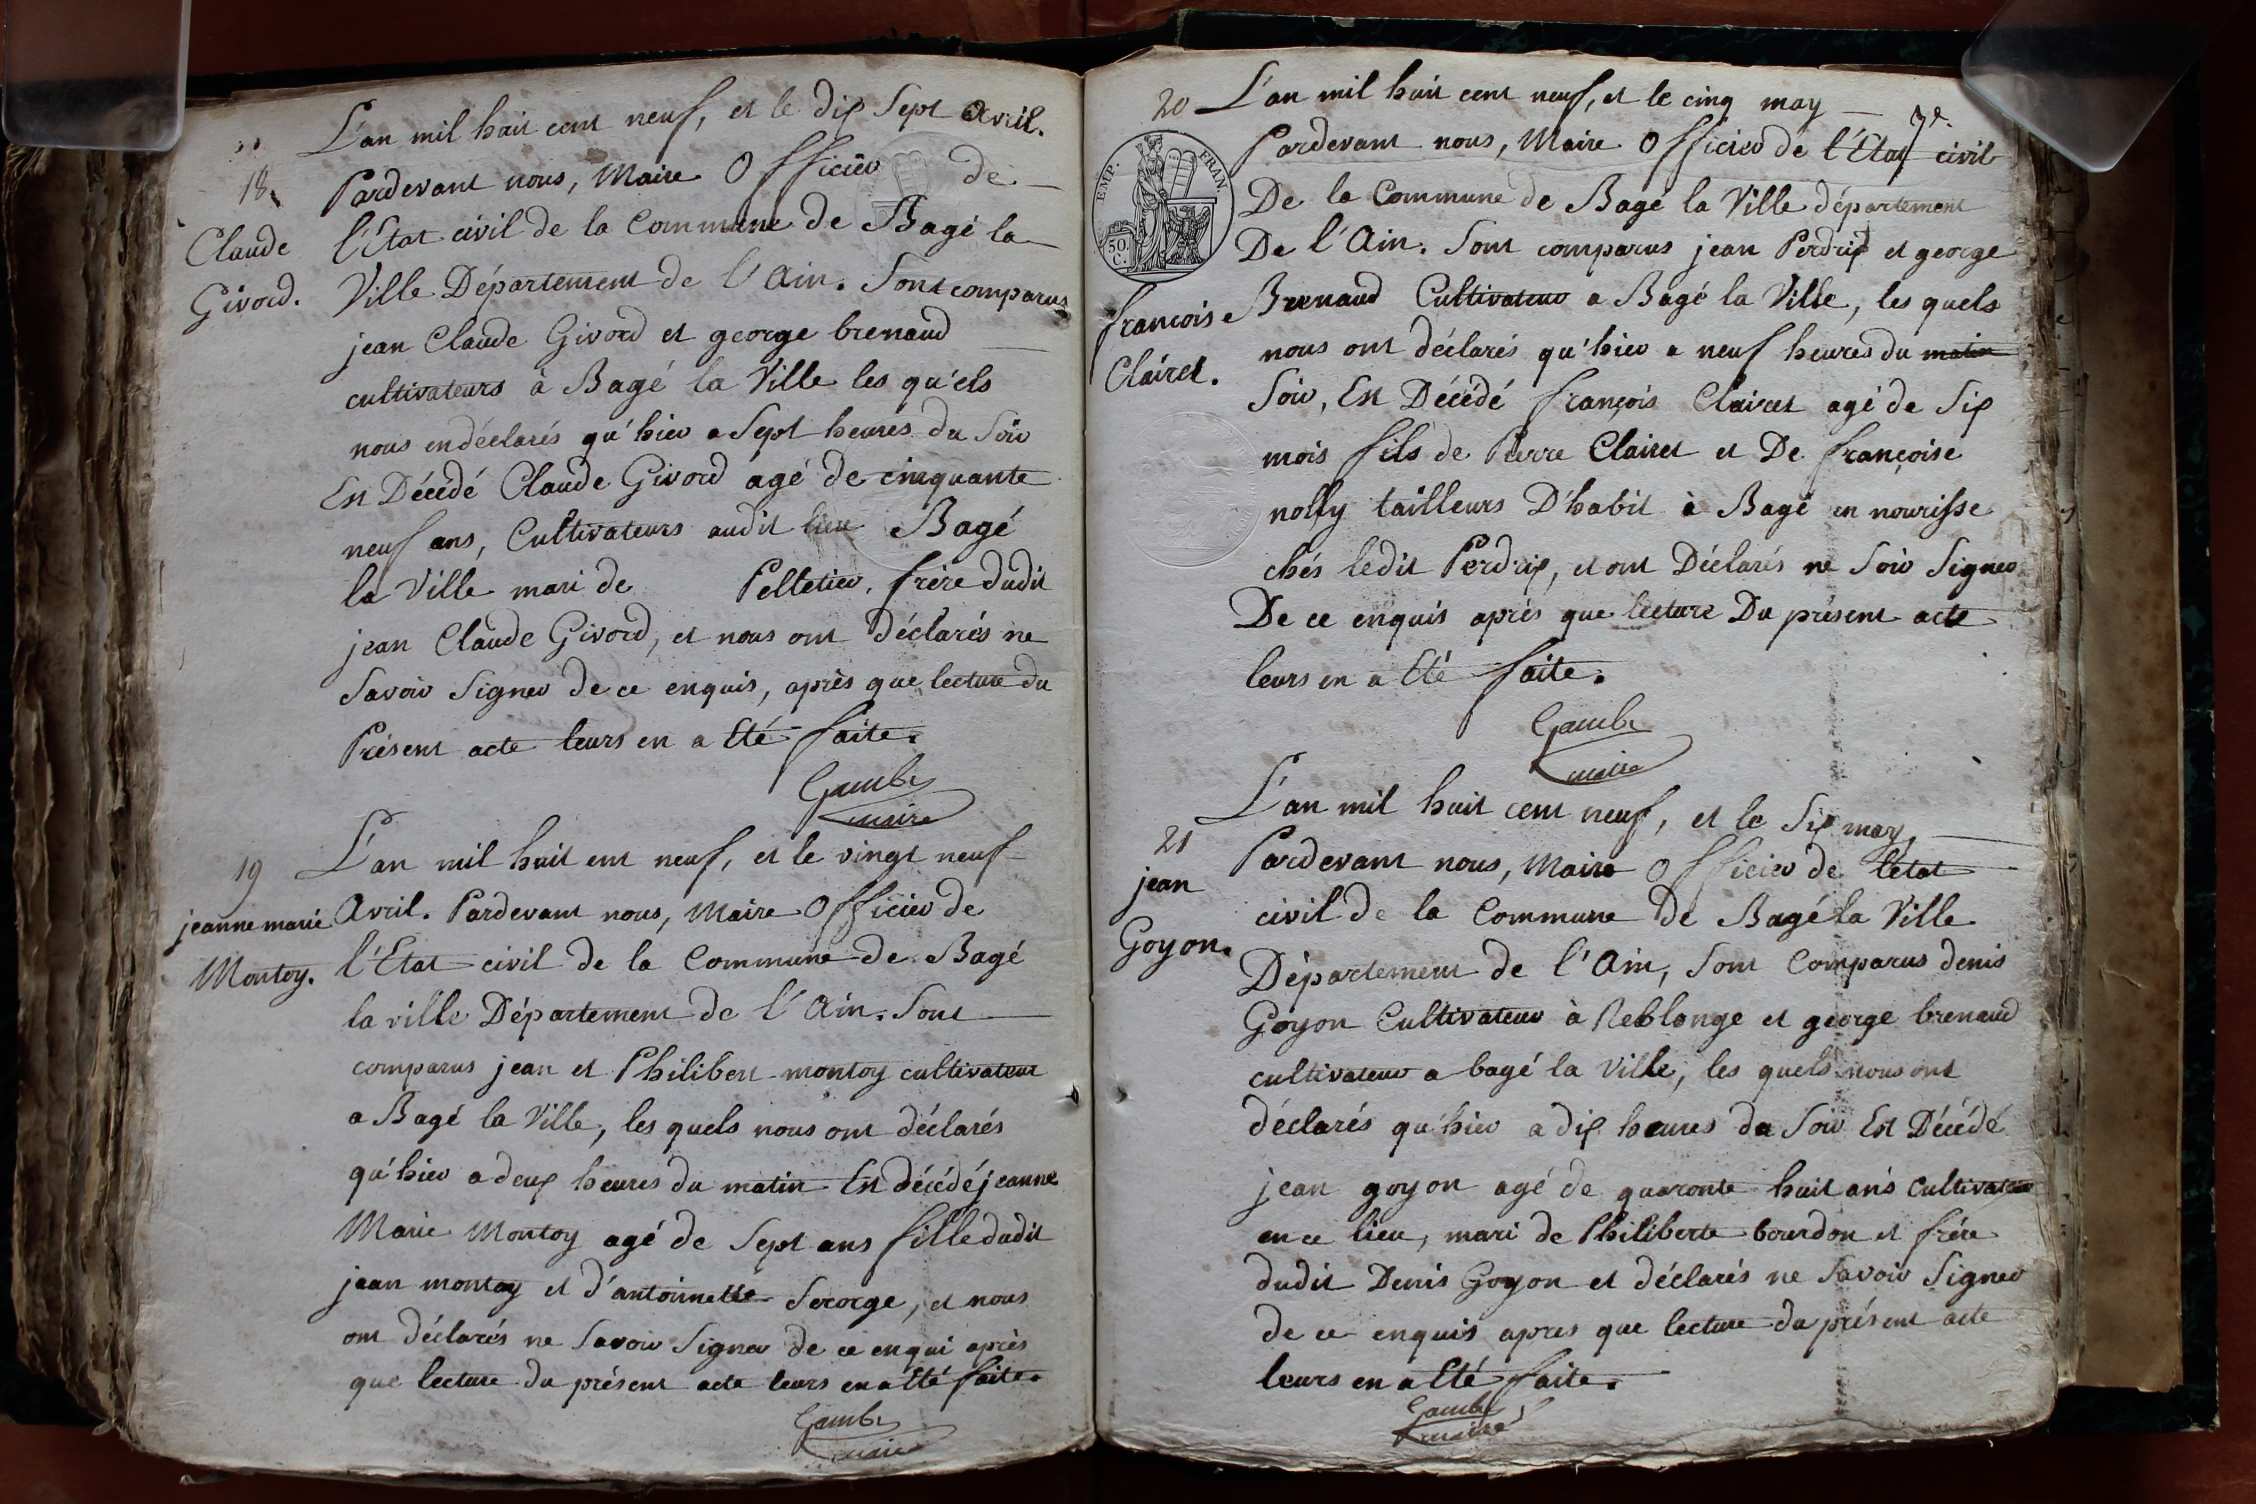 18
Claude
Givord.
L'an mil huit cent neuf, et le dix Sept Avril.
Pardevant nous, Maire Officier de
l'Etat civil de la Commune de Bagé la
Ville Département de l'Ain. Sont comparus
jean Claude Givord et george brenaud
cultivateurs à Bagé la Ville les qu'els
nous en déclarés qu'hier a Sept heures du Soir
Est Décédé Claude Givord agé de cinquante
neuf ans, Cultivateurs audit lieu Bagé
la Ville mari de Pelletier, frère dudit
jean Claude Givord, et nous ont déclarés ne
Savoir Signer de ce enquis, après que lecture du
Présent acte leurs en a Eté faite.
Gambe
maire
19
jeanne marie
Montoy.
L'an mil huit ent neuf, et le vingt neuf
Avril. Pardevant nous, Maire Officier de
l'Etat civil de la Commune de Bagé
la ville Département de l'Ain. Sont
comparus jean et Philibert montoy cultivateur
a Bagé la Ville, les quels nous ont déclarés
qu'hier a deux heures du matin Est décédé jeanne
Marie Montoy agé de Sept ans fille dudit
jean montoy et d'antoinette Serorge, et nous
ont déclarés ne Savoir Signer de ce enqui après
que lecture du présent acte leurs en a Eté faite.
Gambe
maire
7e.
20
EMP. FRAN.
50 C.
françois
Clairet.
L'an mil huit cent neuf, et le cinq may
Pardevant nous, Maire Officier de l'Etat civil
De la Commune de Bagé la Ville département
De l'Ain. Sont comparus jean Perdrix et george
Brenaud Cultivateur a Bagé la Ville, les quels
nous ont déclarés qu'hier a neuf heures du matin
Soir, Est Décédé françois Clairet agé de Six
mois fils de Pierre Clairet et De françoise
nolly tailleurs D'habit à Bagé en nourisse
chés ledit Perdrix, et ont Déclarés ne Soir Signer
De ce enquis après que lecture Du présent acte
leurs en a Eté faite.
Gambe
maire
21
jean
Goyon.
L'an mil huit cent neuf, et le Six may,
Pardevant nous, Maire Officier de l'état
civil de la Commune de Bagé la Ville
Département de l'Ain, Sont Comparus denis
Goyon Cultivateur à Reblonge et george brenaud
cultivateur a bagé la Ville, les quels nous ont
déclarés qu'hier a dix heures du Soir Est Décédé
jean goyon agé de quaronte huit ans Cultivateur
en ce lieu, mari de Philiberte bourdon et frére
dudit Denis Goyon et déclarés ne Savoir Signer
de ce enquis apres que lecture du présent acte
leurs en a Eté faite.
Gambe
maire